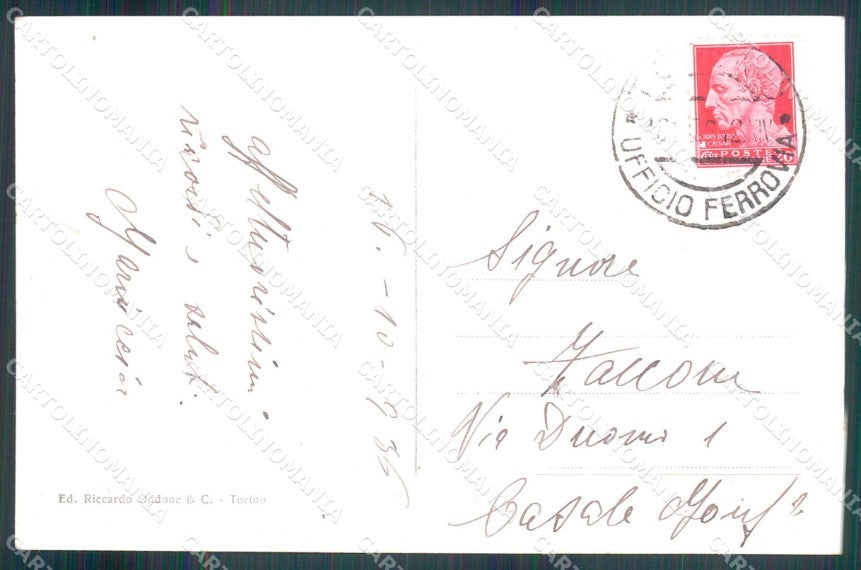 affettuosissimi
ricordi e saluti.
Mariuccia
16.-10-936
Ed. Riccardo Oddone & C. - Torino
POSTE
UFFICIO FERROVIA
Signore
Zaccone
Via Duomo 1
Casale Monf
CARTOLINOMANIA